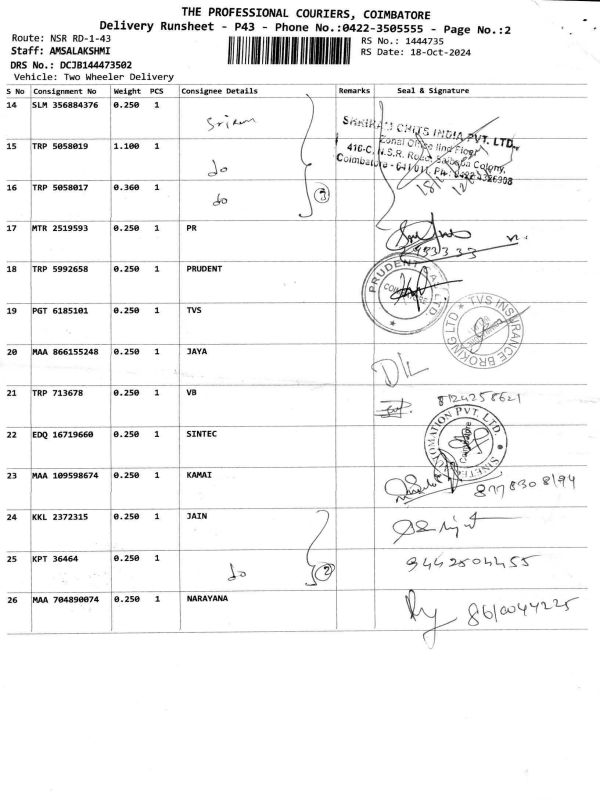 THE PROFESSIONAL COURIERS, COIMBATORE
Delivery Runsheet - P43 - Phone No.:0422-3505555 - Page No.:2
Route: NSR RD-1-43
RS No.: 1444735
Staff: AMSALAKSHMI
RS Date: 18-Oct-2024
DRS No.: DCJB144473502
Vehicle: Two Wheeler Delivery
S No Consignment No Weight PCS Consignee Details Remarks Seal & Signature
14 SLM 356884376 0.250 1
Sriram
SHRIRAM CHITS INDIA PVT. LTD.,
Zonal Office IInd Floor
416-C, N.S.R. Road, Saibaba Colony,
Coimbatore - 641 011. PH: 0422 4326908
15 TRP 5058019 1.100 1
do
16 TRP 5058017 0.360 1
do
3
17 MTR 2519593 0.250 1 PR
18 TRP 5992658 0.250 1 PRUDENT
PRUDENT
19 PGT 6185101 0.250 1 TVS
TVS INSURANCE BROKING LTD
20 MAA 866155248 0.250 1 JAYA
21 TRP 713678 0.250 1 VB
8124258621
22 EDQ 16719660 0.250 1 SINTEC
AUTOMATION PVT. LTD.
Coimbatore
23 MAA 109598674 0.250 1 KAMAI
24 KKL 2372315 0.250 1 JAIN
25 KPT 36464 0.250 1
do
2
9442504455
26 MAA 704890074 0.250 1 NARAYANA
8610044225